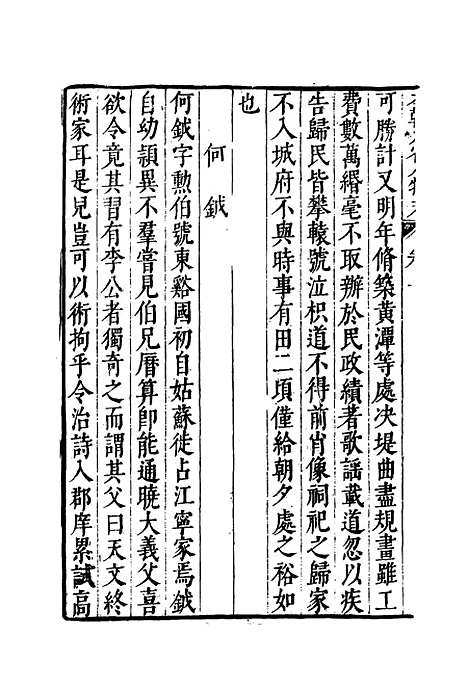 可勝計又明年脩築黃潭等處决堤曲盡規畫雖工
費數萬緡毫不取辦於民政績著歌謡載道忽以疾
告歸民皆攀轅號泣枳道不得前肖像祠祀之歸家
不入城府不與時事有田二頃僅給朝夕處之裕如
也
何鉞
何鉞字勳伯號東谿國初自姑蘇徙占江寧家焉鉞
自幼頴異不羣嘗見伯兄曆算卽能通曉大義父喜
欲令竟其習有李公者獨奇之而謂其父曰天文終
術家耳是兒豈可以術拘乎令治詩入郡庠累試高